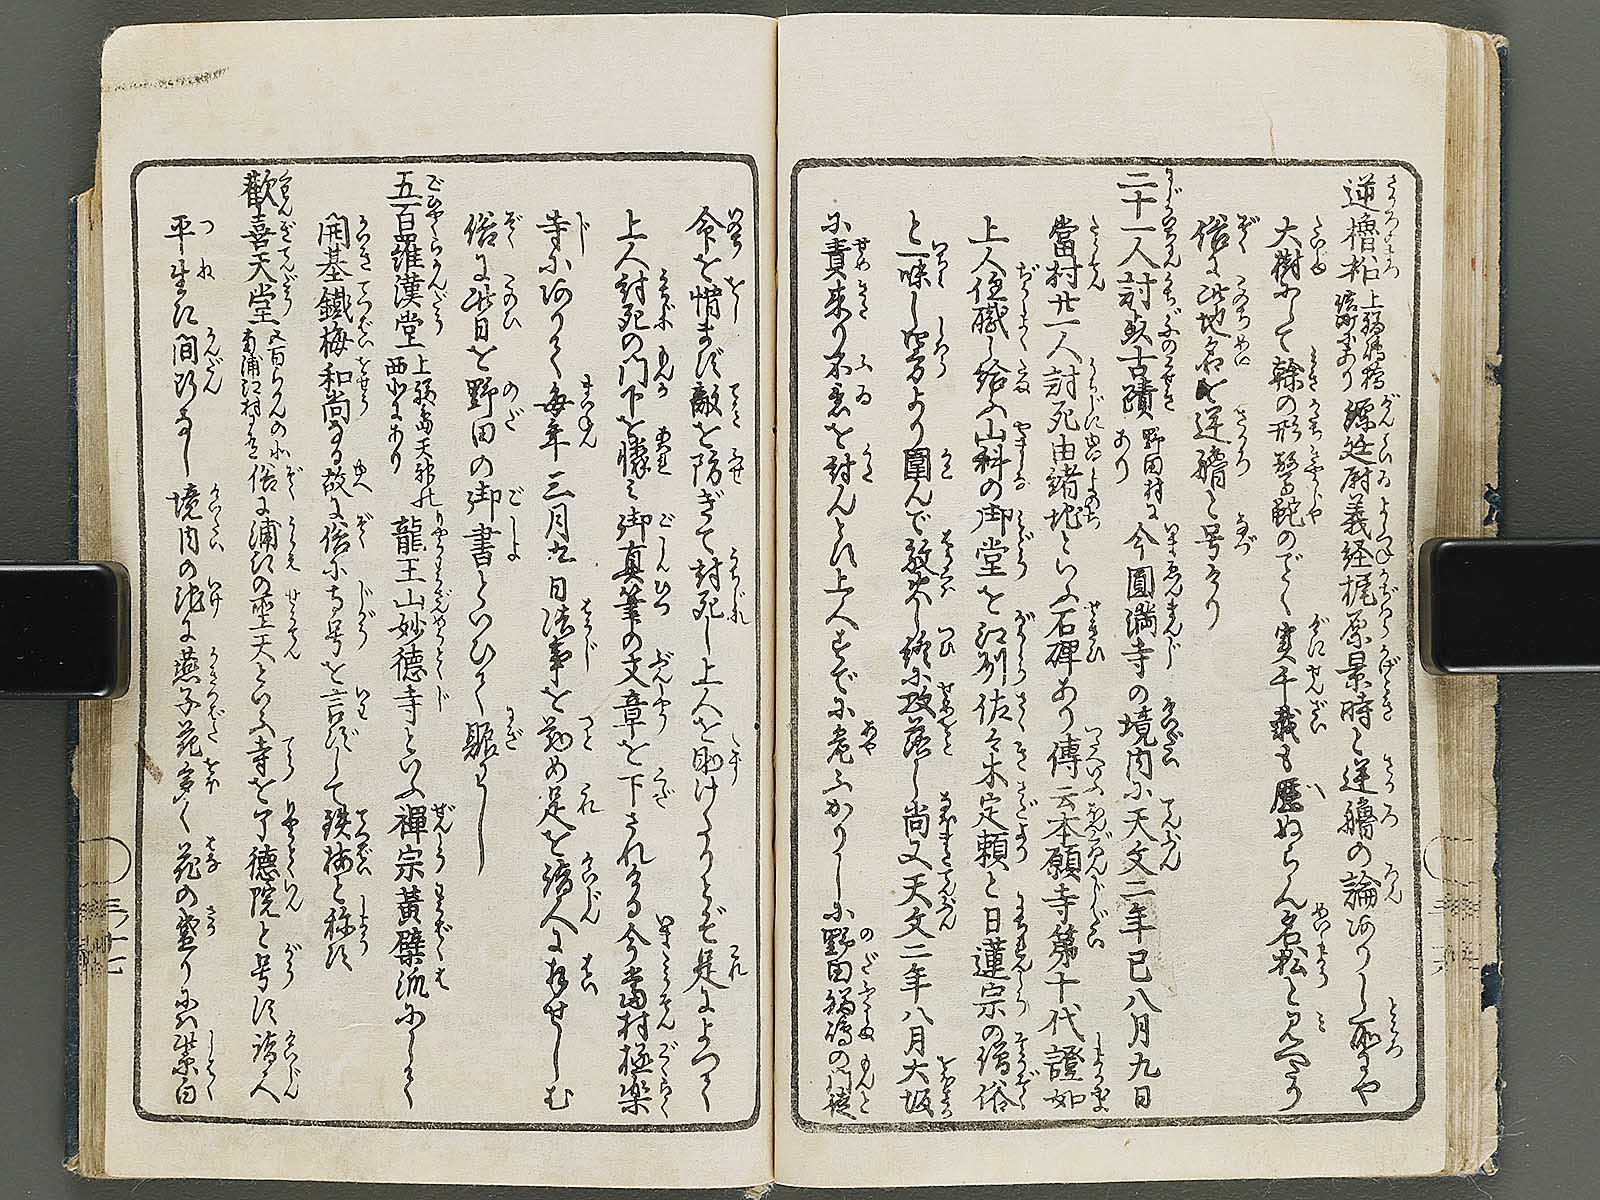 逆櫓松 上福嶋橋詰町にあり 源廷尉義経梶原景時と逆艪の論ありし所にや
大樹にして幹の形蟠蛇のごとく実千載も歴ぬらん名松と見へたり
俗に此地名を逆艪と号けり
二十一人討死古蹟 野田村にあり 今圓満寺の境内に天文二年巳八月九日
當村廿一人討死由緒地といふ石碑あり傳云本願寺第十代證如
上人住職し給ふ山科の御堂を江州佐々木定頼と日蓮宗の僧俗
と一味し四方より圍んで放火し終に攻落し尚又天文二年八月大坂
に責来り不意を討んとす上人すでに危ふかりしに野田福嶋の門徒
命を惜まず敵を防ぎて討死し上人を助けたりとぞ是によつて
上人討死の門下を憐み御真筆の文章を下されける今當村極楽
寺にありて毎年三月九日法事を勤め是を諸人に拝せしむ
俗に此日を野田の御書といひて賑はし
五百羅漢堂 上福嶋天神の西北にあり 龍王山妙徳寺といふ禅宗黄檗派にして
開基鐵梅和尚なる故に俗に寺号を言ずして鉄梅と称す
歓喜天堂 五百らかんの北浦江村にあり 俗に浦江の聖天といふ寺を了徳院と号す諸人
平生に間断なし境内の池に燕子花多く花の盛りには紫白
三ノ廿七